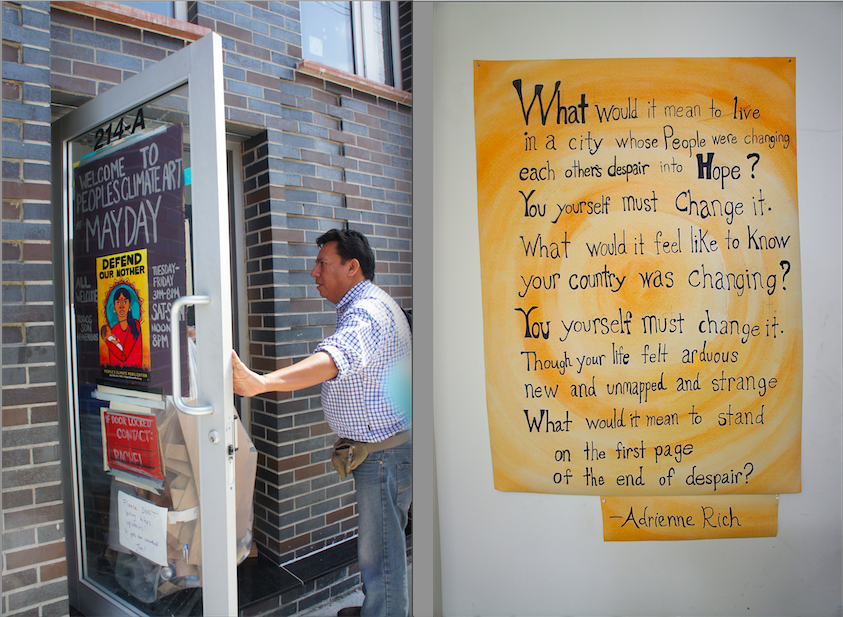 214-A
WELCOME TO
PEOPLES CLIMATE ART
MAYDAY
DEFEND
OUR MOTHER
ALL
WELCOME
TODOS
SON
BIENVENIDOS
TUESDAY-
FRIDAY
3PM-8PM
SAT-SUN
NOON
8PM
PEOPLE'S CLIMATE MOBILIZATION
IF DOOR LOCKED
CONTACT:
RACHEL
What would it mean to live
in a city whose People were changing
each other's despair into Hope?
You yourself must Change it.
What would it feel like to know
your country was Changing?
You yourself must change it.
Though your life felt arduous
new and unmapped and strange
What would it mean to stand
on the first page
of the end of despair?
-Adrienne Rich